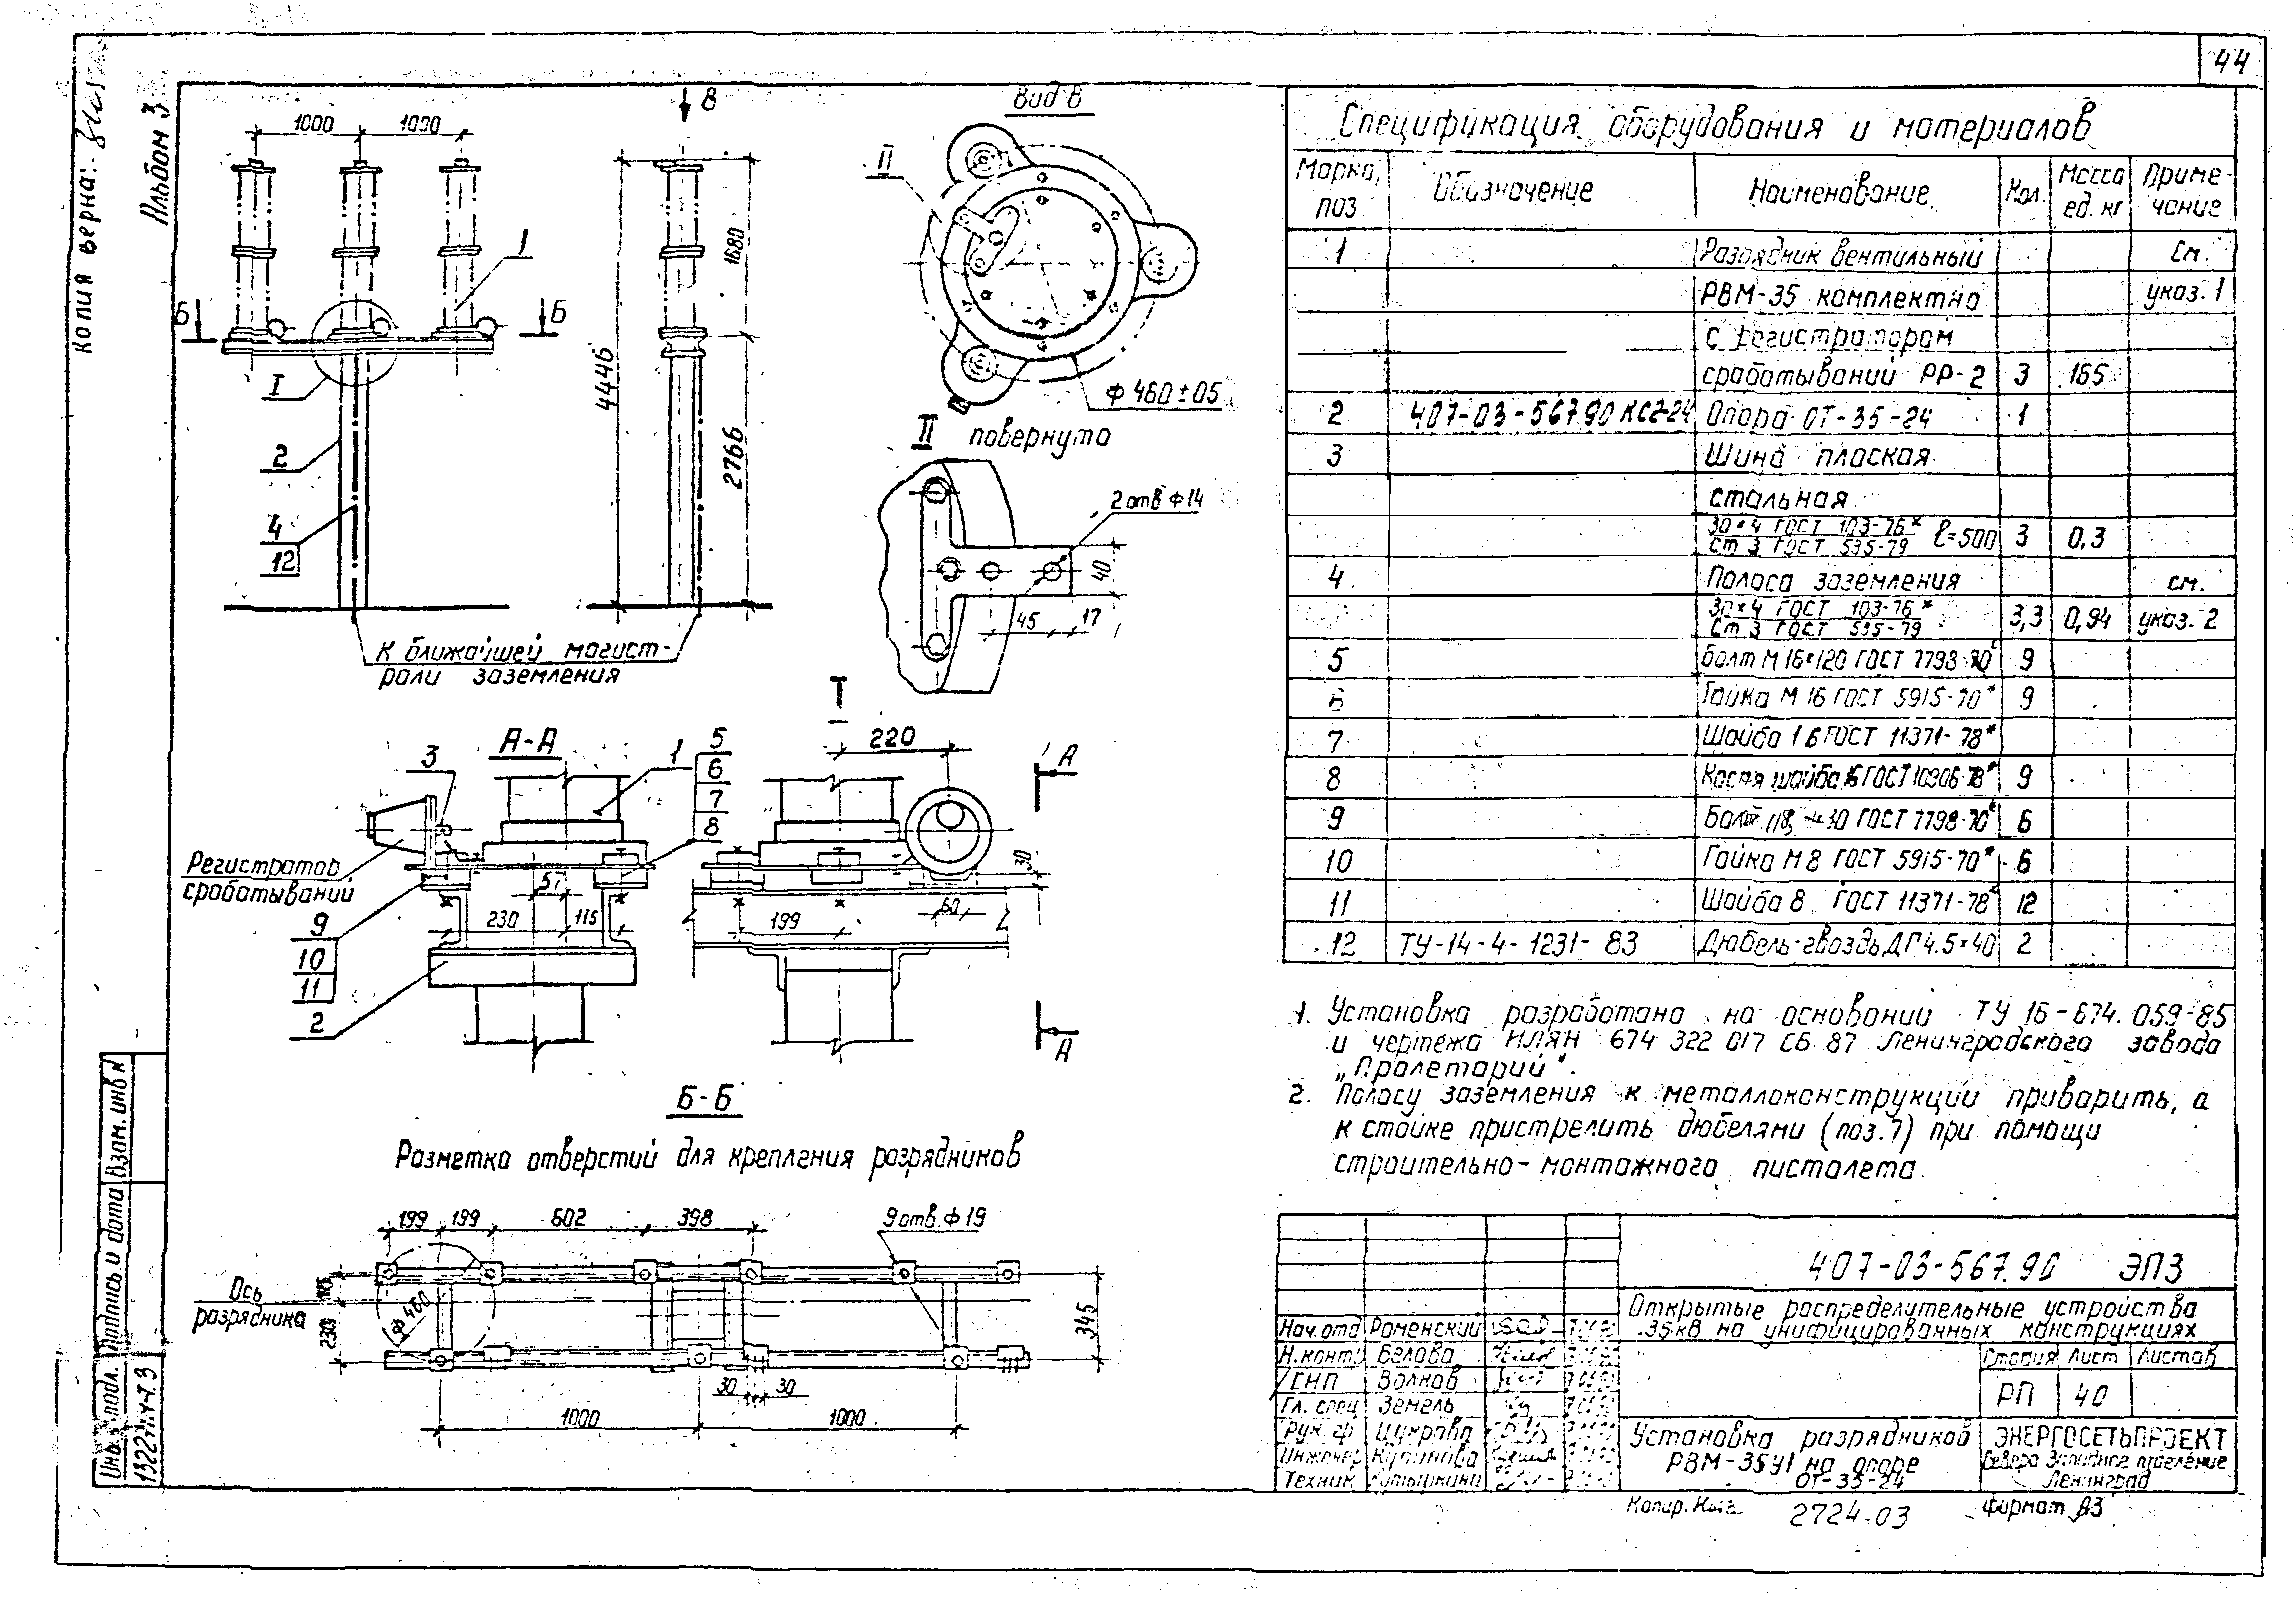 44
Копия верна:
Альбом 3
1000 1000
В
Вид В
II
1
Б Б
I
2
4
12
4446
1680
2766
К ближайшей магист-
рали заземления
ф 460±05
II повернуто
2 отв ф14
40
45 17
А-А
3
1
5
6
7
8
Регистратор
срабатываний
9
10
11
2
57
230 115
I
220
А
30
60
199
А
Б-Б
Разметка отверстий для крепления разрядников
199 199 602 398
9 отв. ф 19
Ось
разрядника
230
ф 460
345
30 30
1000 1000
Спецификация оборудования и материалов
Марка, поз. Обозначение Наименование Кол. Масса ед. кг Приме-чание
1 Разрядник вентильный см.
РВМ-35 комплектно указ. 1
с регистратором
срабатываний РР-2 3 165
2 407-03-567.90 КС2-24 Опора ОТ-35-24 1
3 Шина плоская
стальная
30×4 ГОСТ 103-76*
Ст 3 ГОСТ 535-79 ℓ=500 3 0,3
4 Полоса заземления см.
30×4 ГОСТ 103-76*
Ст 3 ГОСТ 535-79 3,3 0,94 указ. 2
5 Болт М16×120 ГОСТ 7798-70* 9
6 Гайка М16 ГОСТ 5915-70* 9
7 Шайба 16 ГОСТ 11371-78*
8 Косая шайба 16 ГОСТ 10906-78* 9
9 Болт М8×30 ГОСТ 7798-70* 6
10 Гайка М8 ГОСТ 5915-70* 6
11 Шайба 8 ГОСТ 11371-78* 12
12 ТУ-14-4-1231-83 Дюбель-гвоздь ДГ 4,5×40 2
1. Установка разработана на основании ТУ 16-674.059-85
и чертежа ИЛЯН 674 322 017 СБ 87 Ленинградского завода
„Пролетарий".
2. Полосу заземления к металлоконструкции приварить, а
к стойке пристрелить дюбелями (поз. 7) при помощи
строительно-монтажного пистолета.
407-03-567.90 ЭП3
Открытые распределительные устройства
35кВ на унифицированных конструкциях
Нач. отд Роменский
Н. контр Белова
ГИП Волков
Гл. спец Земель
Рук. гр
Инженер
Техник
Стадия Лист Листов
РП 40
Установка разрядников
РВМ-35У1 на опоре
ОТ-35-24
ЭНЕРГОСЕТЬПРОЕКТ
Северо-Западное отделение
Ленинград
Копир.
2724-03
Формат А3
Инв. № подл. Подпись и дата Взам. инв №